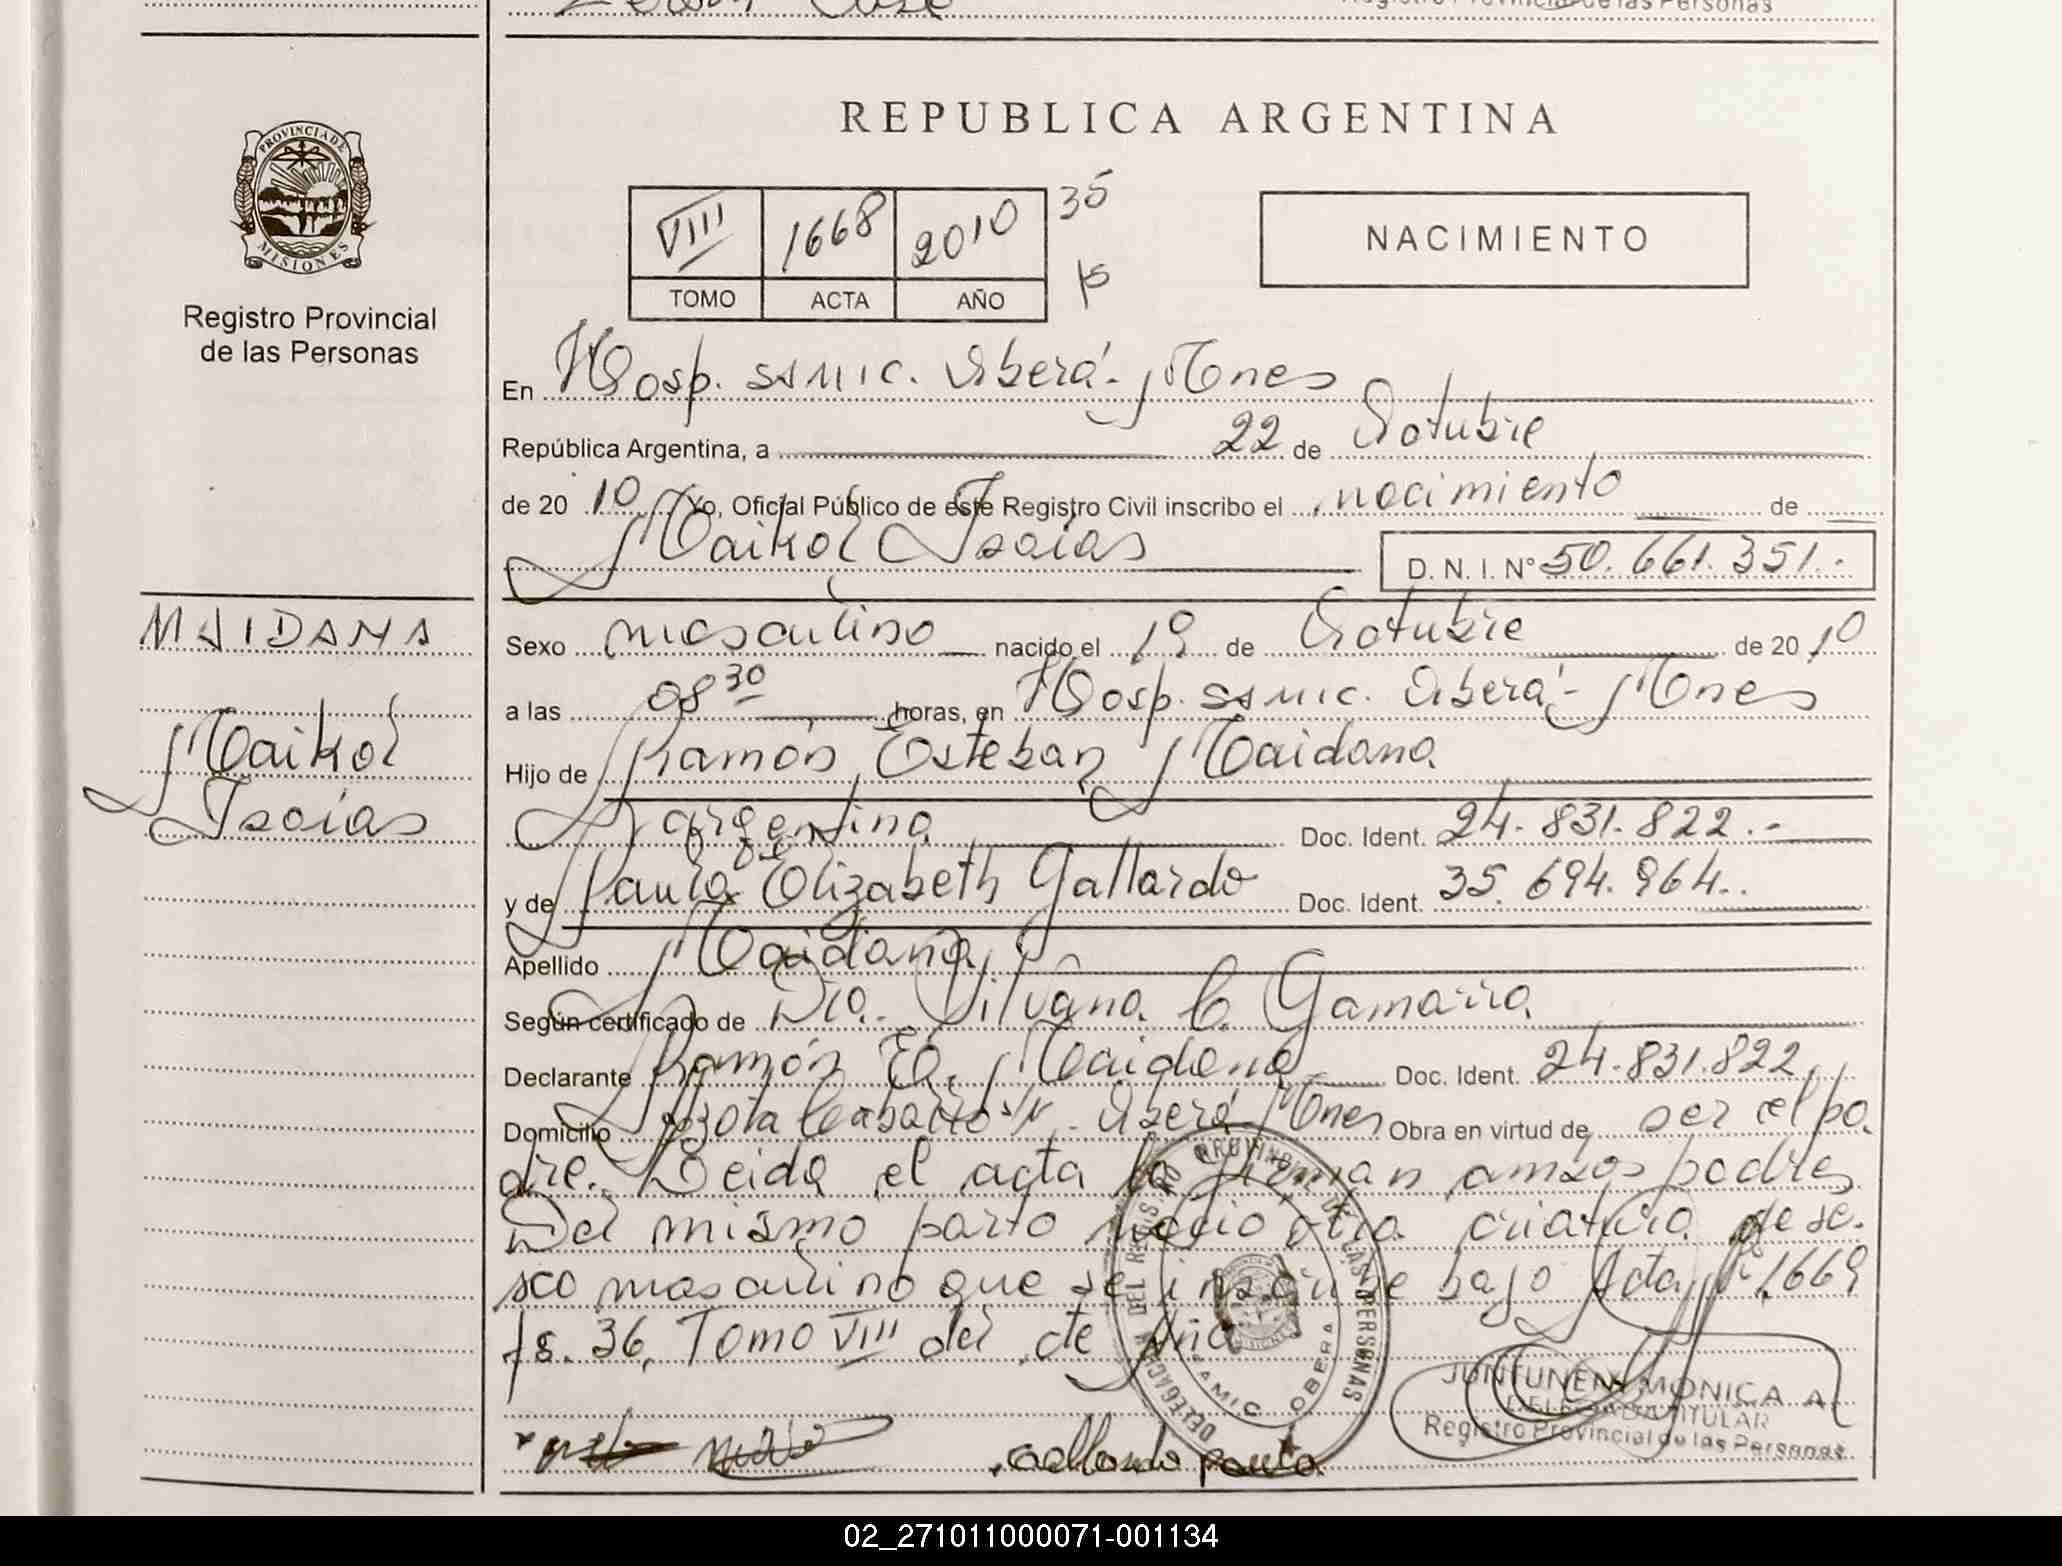 REPUBLICA ARGENTINA
PROVINCIA DE MISIONES
Registro Provincial
de las Personas
VIII 1668 2010 35
TOMO ACTA AÑO
NACIMIENTO
En Hosp. SAMIC. Oberá - Mnes
República Argentina, a 22 de Octubre
de 20 10 Yo, Oficial Público de este Registro Civil inscribo el nacimiento de
Maikol Isaías D. N. I. N° 50.661.351.-
MAIDANA
Maikol
Isaías
Sexo masculino nacido el 19 de Octubre de 20 10
a las 08 30 horas, en Hosp. SAMIC. Oberá - Mnes
Hijo de Ramón Esteban Maidana
Argentina Doc. Ident. 24.831.822.-
y de Paula Elizabeth Gallardo Doc. Ident. 35.694.964..
Apellido Maidana
Según certificado de Dra. Silvana C. Gamarra
Declarante Ramón E. Maidana Doc. Ident. 24.831.822
Domicilio Caballero s/n - Oberá Mnes Obra en virtud de ser el pa.
dre. Leida el acta la firman ambos padres
Del mismo parto nació otra criatura de se.
xo masculino que se inscribe bajo Acta N° 1669
fs. 36, Tomo VIII del cte Año
DELEGACION DEL REGISTRO PROVINCIAL DE LAS PERSONAS
SAMIC OBERA
JUNTUNEN MONICA A.
DELEGADA TITULAR
Registro Provincial de las Personas
Gallardo Paula
02_271011000071-001134